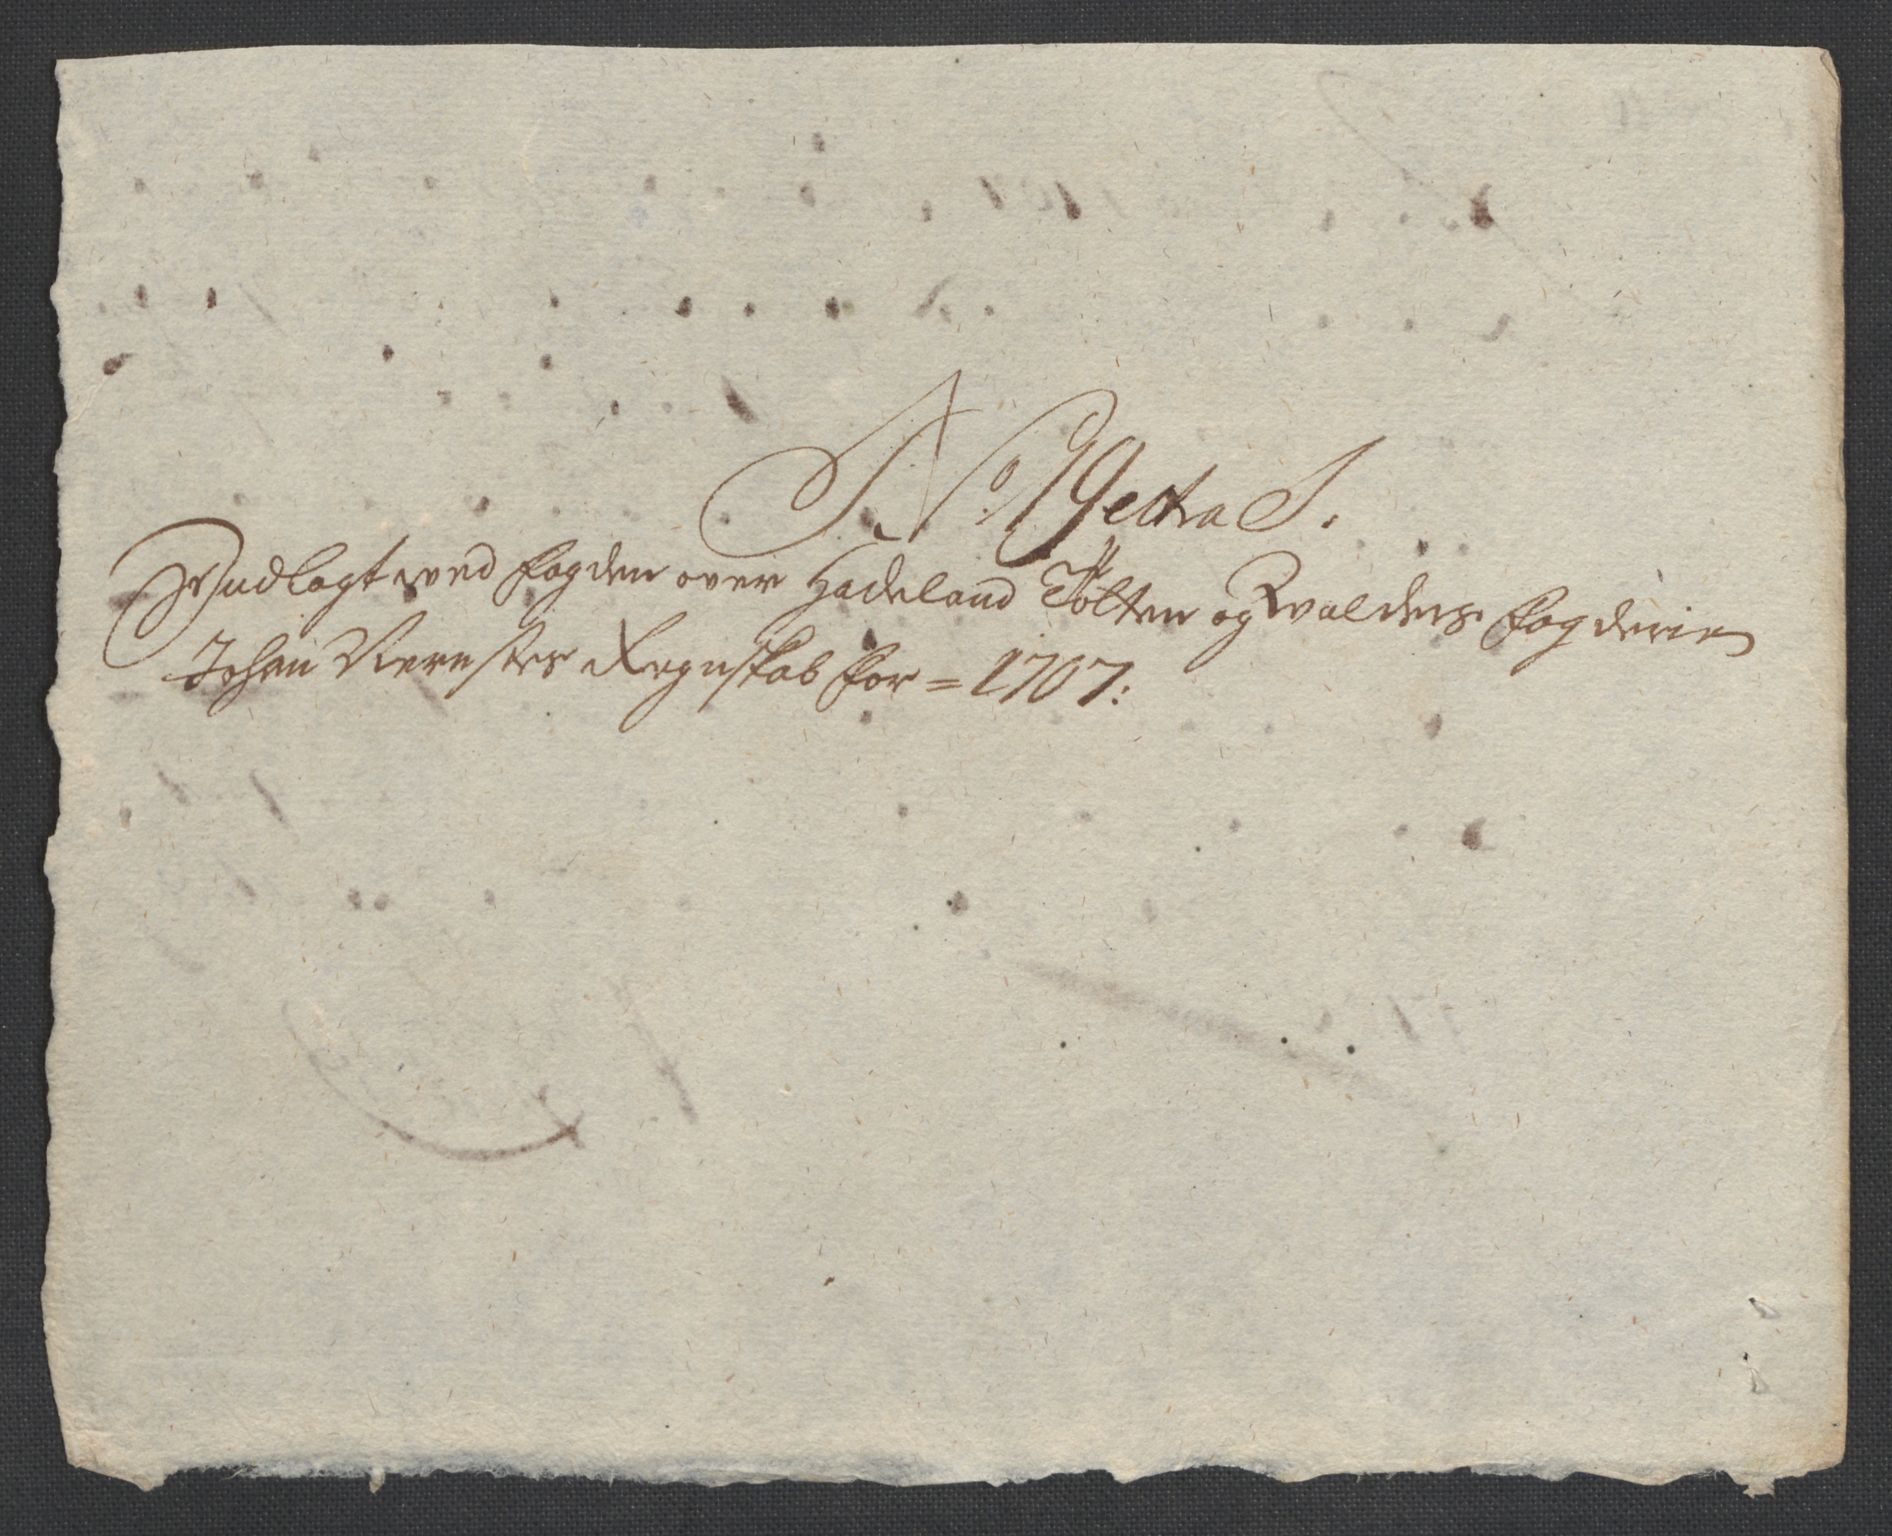 No Litra S.
Indlagt wed fogden over Hadeland Totten og Walders fogderier
Johan Nerestes Regnskab for = 1707: